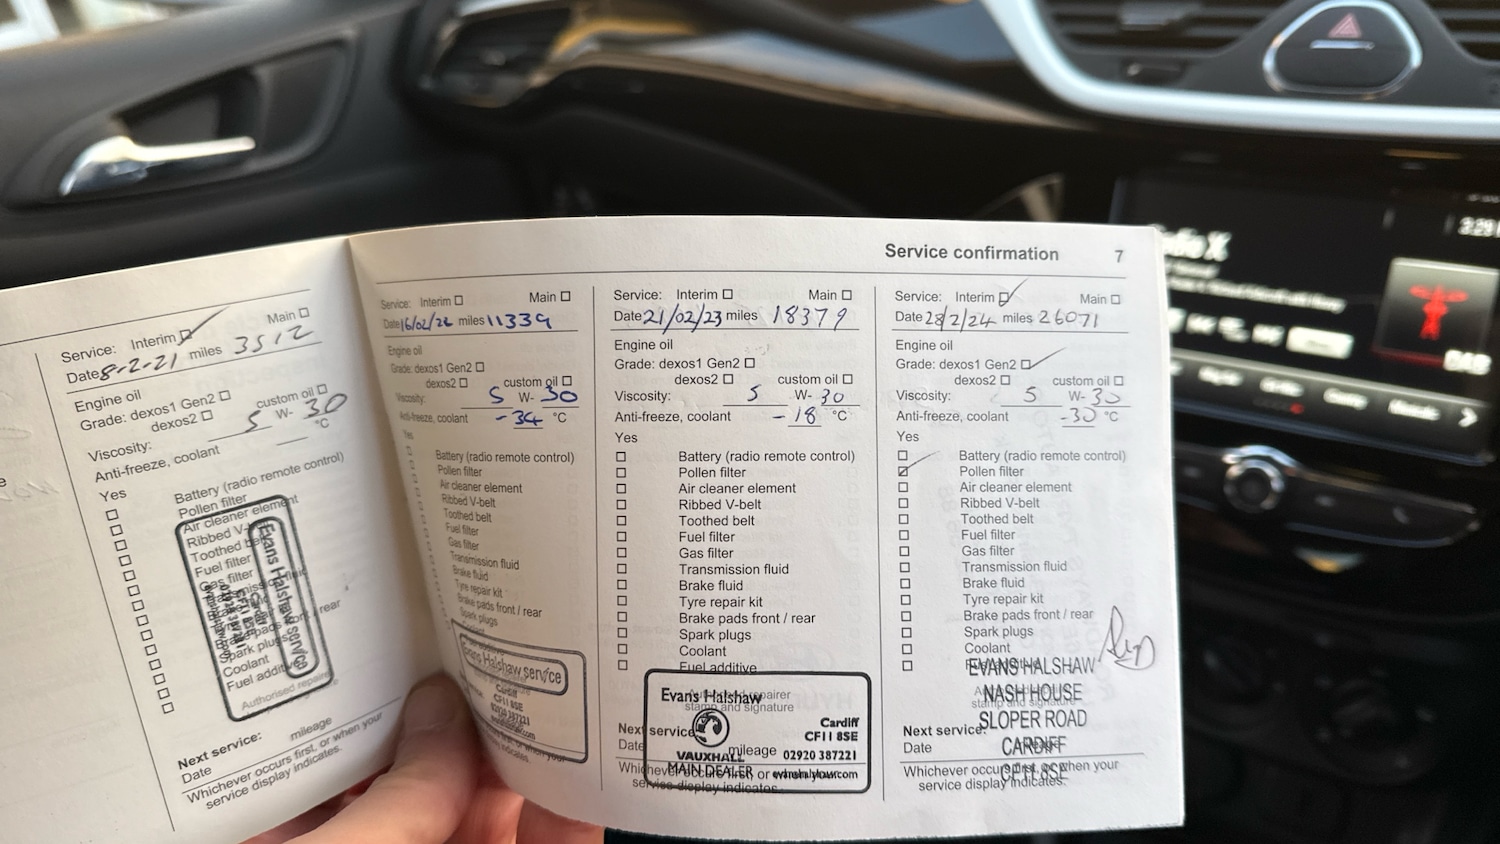 Service confirmation 7
Service: Interim Main
Date 8-2-21 miles 3512
Engine oil
Grade: dexos1 Gen2
dexos2 custom oil
Viscosity: 5 W- 30
Anti-freeze, coolant °C
Yes
Battery (radio remote control)
Pollen filter
Air cleaner element
Ribbed V-belt
Toothed belt
Fuel filter
Gas filter
Spark plugs
Coolant
Fuel additive
Authorised repairer
Evans Halshaw service
Next service: mileage
Date
Whichever occurs first, or when your
service display indicates.
Service: Interim Main
Date 16/02/22 miles 11339
Engine oil
Grade: dexos1 Gen2
dexos2 custom oil
Viscosity: 5 W- 30
Anti-freeze, coolant -34 °C
Yes
Battery (radio remote control)
Pollen filter
Air cleaner element
Ribbed V-belt
Toothed belt
Fuel filter
Gas filter
Transmission fluid
Brake fluid
Tyre repair kit
Brake pads front / rear
Spark plugs
Evans Halshaw service
Cardiff
CF11 8SE
02920 387221
Service: Interim Main
Date 21/02/23 miles 18379
Engine oil
Grade: dexos1 Gen2
dexos2 custom oil
Viscosity: 5 W- 30
Anti-freeze, coolant -18 °C
Yes
Battery (radio remote control)
Pollen filter
Air cleaner element
Ribbed V-belt
Toothed belt
Fuel filter
Gas filter
Transmission fluid
Brake fluid
Tyre repair kit
Brake pads front / rear
Spark plugs
Coolant
Fuel additive
Authorised repairer
stamp and signature
Evans Halshaw
VAUXHALL
MAIN DEALER
Cardiff
CF11 8SE
02920 387221
Next service:
Date mileage
Whichever occurs first, or when your
service display indicates.
Service: Interim Main
Date 28/2/24 miles 26071
Engine oil
Grade: dexos1 Gen2
dexos2 custom oil
Viscosity: 5 W- 30
Anti-freeze, coolant -30 °C
Yes
Battery (radio remote control)
Pollen filter
Air cleaner element
Ribbed V-belt
Toothed belt
Fuel filter
Gas filter
Transmission fluid
Brake fluid
Tyre repair kit
Brake pads front / rear
Spark plugs
Coolant
EVANS HALSHAW
NASH HOUSE
SLOPER ROAD
CARDIFF
CF11 8SE
stamp and signature
Next service:
Date
Whichever occurs first, or when your
service display indicates.
3:29
DAB